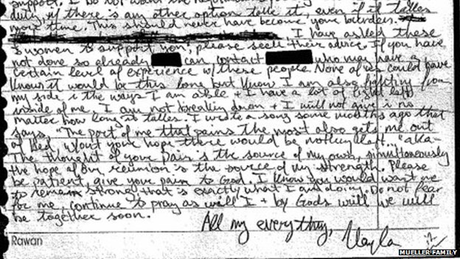 support, I do not want the
duty, if there is any other option take it, even if it takes
more time. This should never have become your burden.
I have asked these
women to support you; please seek their advice. If you have
not done so already, can contact who may have a
certain level of experience w/ these people. None of us could have
known it would be this long but know I am also fighting from
my side in the ways I am able + I have a lot of fight left
inside of me. I am not breaking down + I will not give in no
matter how long it takes. I wrote a song some months ago that
says, "The part of me that pains the most also gets me out
of bed, w/out your hope there would be nothing left…" aka-
The thought of your pain is the source of my own, simultaneously
the hope of our reunion is the source of my strength. Please
be patient, give your pain to God. I know you would want me
to remain strong. That is exactly what I am doing. Do not fear
for me, continue to pray as will I + by God's will we will
be together soon.
All my everything,
Kayla
Rawan
MUELLER FAMILY